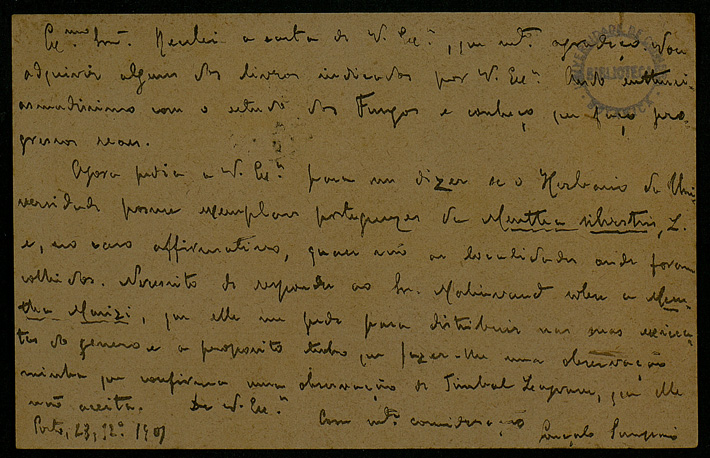 Ex.mo Snr. Recebi a carta de V. Ex.ª, que mt.º agradeço. Vou
adquirir alguns dos livros indicados por V. Ex.ª Ando enthusi-
asmadissimo com o estudo dos Fungos e conheço que faço pro-
gressos reaes.
Agora pedia a V. Ex.ª para me dizer se o Herbario da Uni-
versidade possue exemplares portuguezes da Mentha silvestris, L.
e, no caso affirmativo, quaes são as localidades onde foram
colhidos. Necessito de responder ao Sr. Malinvaud sobre a Men-
tha Marizi, que elle me pede para distribuir nas suas exsicca-
tas do genero e a proposito tenho que fazer-lhe uma observação
minha que confirma uma observação de Timbal Lagrave, que elle
não aceita. De V. Ex.ª
Com mt.ª consideração
Porto, 23, 12.º 1901 Gonçalo Sampaio
UNIVERSIDADE DE COIMBRA
BIBLIOTECA
BOTANICA